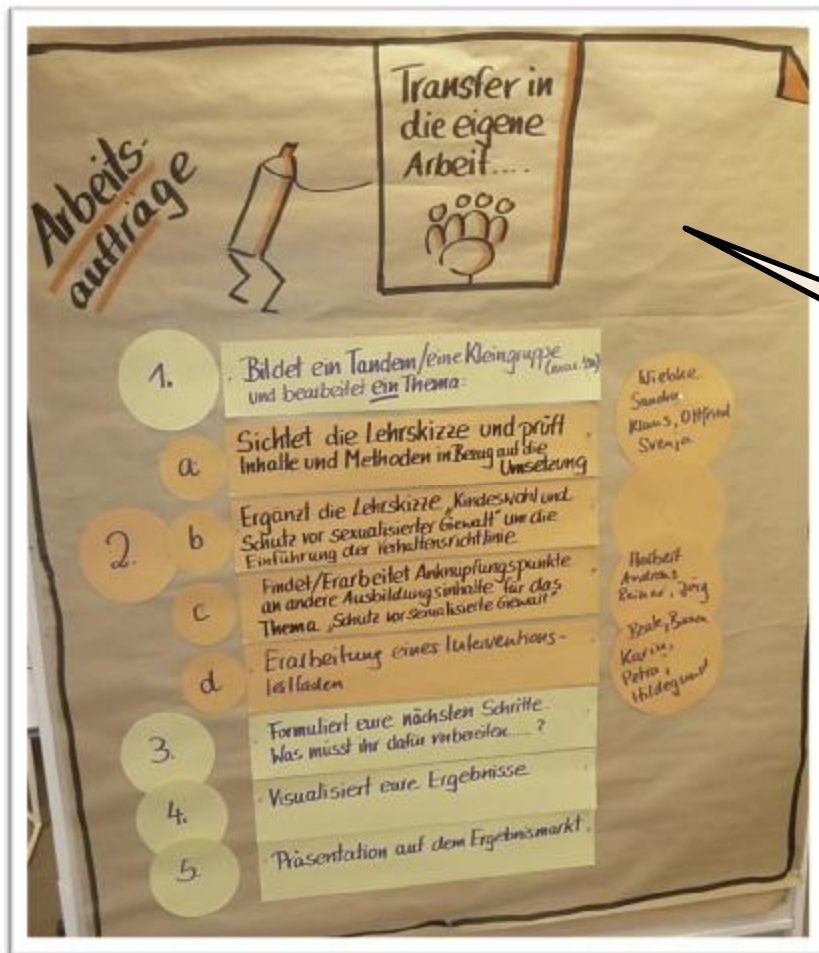 Arbeits-
aufträge
Transfer in
die eigene
Arbeit....
1.
Bildet ein Tandem/eine Kleingruppe
und bearbeitet ein Thema:
2.
a
Sichtet die Lehrskizze und prüft
Inhalte und Methoden in Bezug auf die
Umsetzung
Wiebke
Sandra
Klaus, Ottfried
Svenja
b
Ergänzt die Lehrskizze „Kindeswohl und
Schutz vor sexualisierter Gewalt" um die
Einführung der Verhaltensrichtlinie
c
Findet/Erarbeitet Anknüpfungspunkte
an andere Ausbildungsinhalte für das
Thema „Schutz vor sexualisierte Gewalt"
Herbert
Andreas
Reimer, Jörg
d
Erarbeitung eines Interventions-
leitfaden
Beate,
Karin,
Petra,
Hildegund
3.
Formuliert eure nächsten Schritte.
Was müsst ihr dafür vorbereiten....?
4.
Visualisiert eure Ergebnisse
5.
Präsentation auf dem Ergebnismarkt.